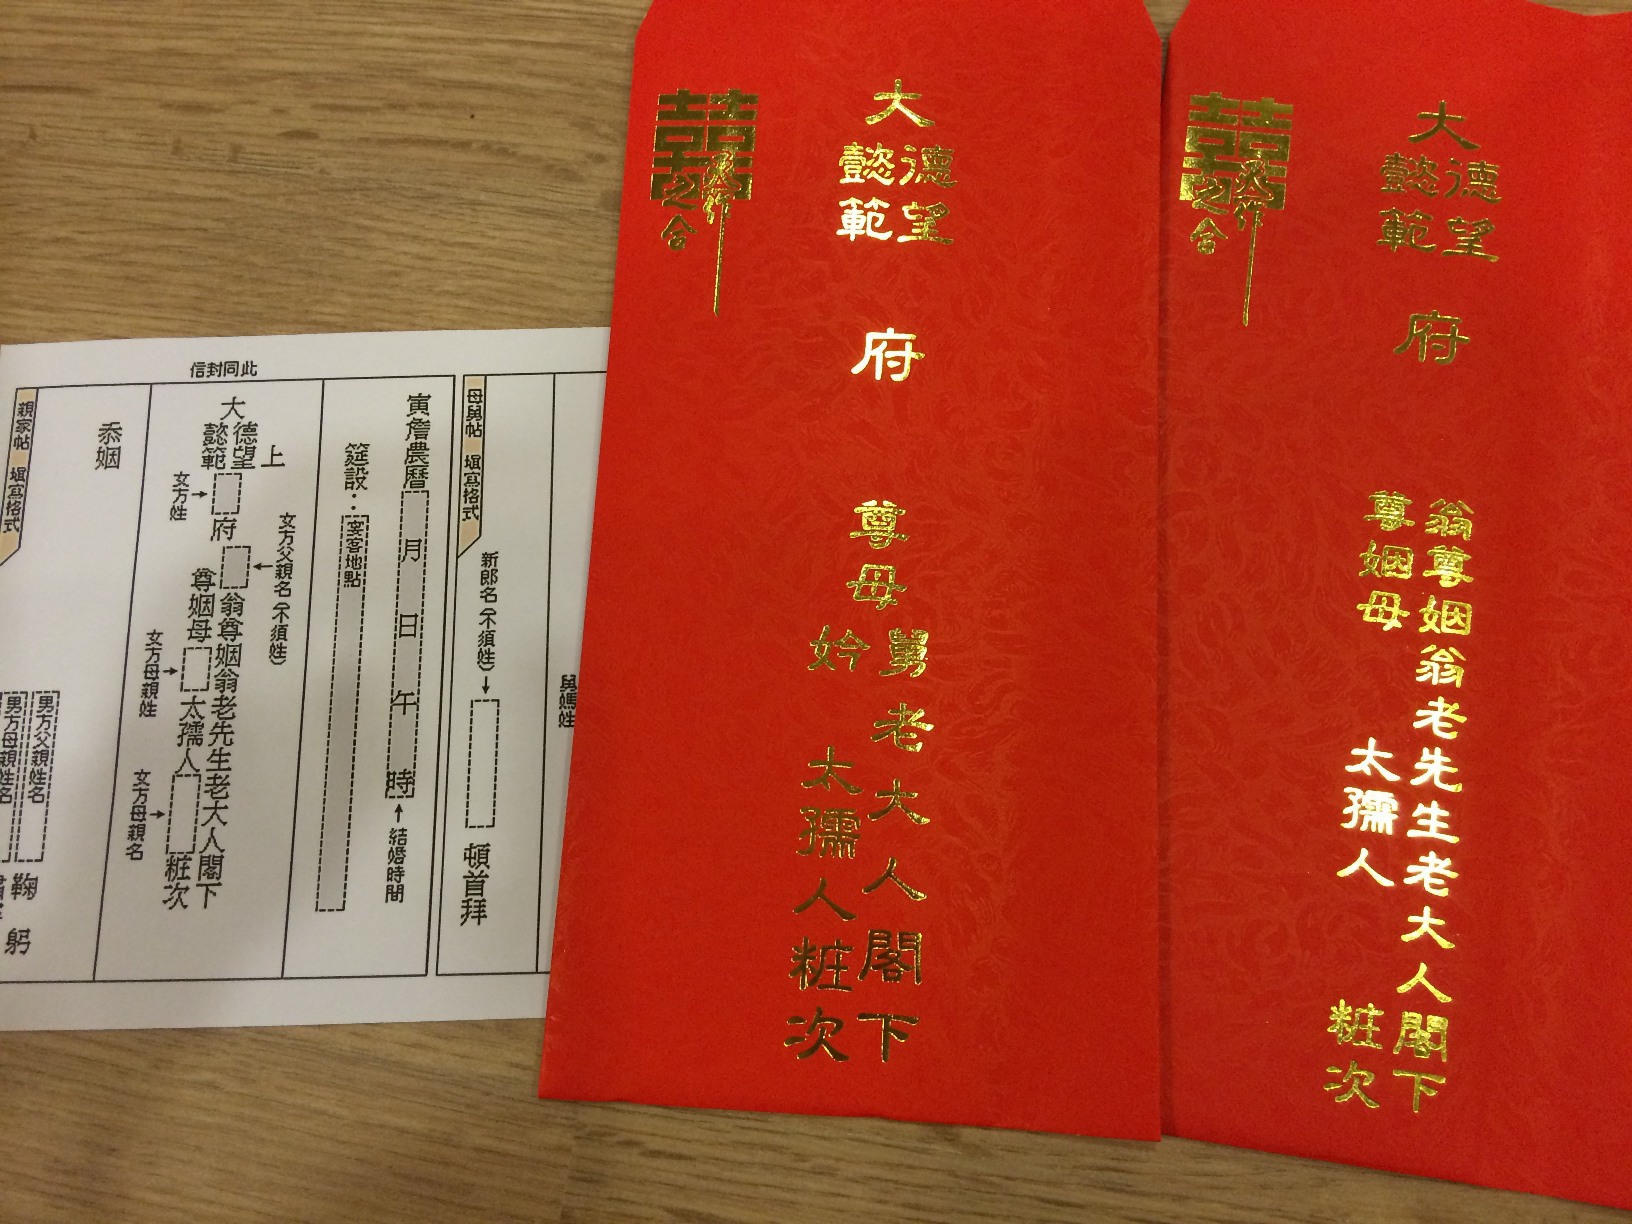 信封同此
母舅帖 填寫格式
新郎名(不須姓)
頓首拜
寅詹農曆 月 日 午 時
結婚時間
筵設:
宴客地點
上
大德望
懿範
府
女方姓
女方父親名(不須姓)
翁尊姻翁老先生老大人閣下
尊姻母 太孺人 粧次
女方母親姓
女方母親名
忝姻
男方父親姓名
男方母親姓名
鞠
躬
親家帖 填寫格式
囍
天作
之合
大
德望
懿範
府
尊母舅老大人閣下
妗 太孺人粧次
囍
天作
之合
大
德望
懿範
府
翁尊姻翁老先生老大人閣下
尊姻母 太孺人 粧次